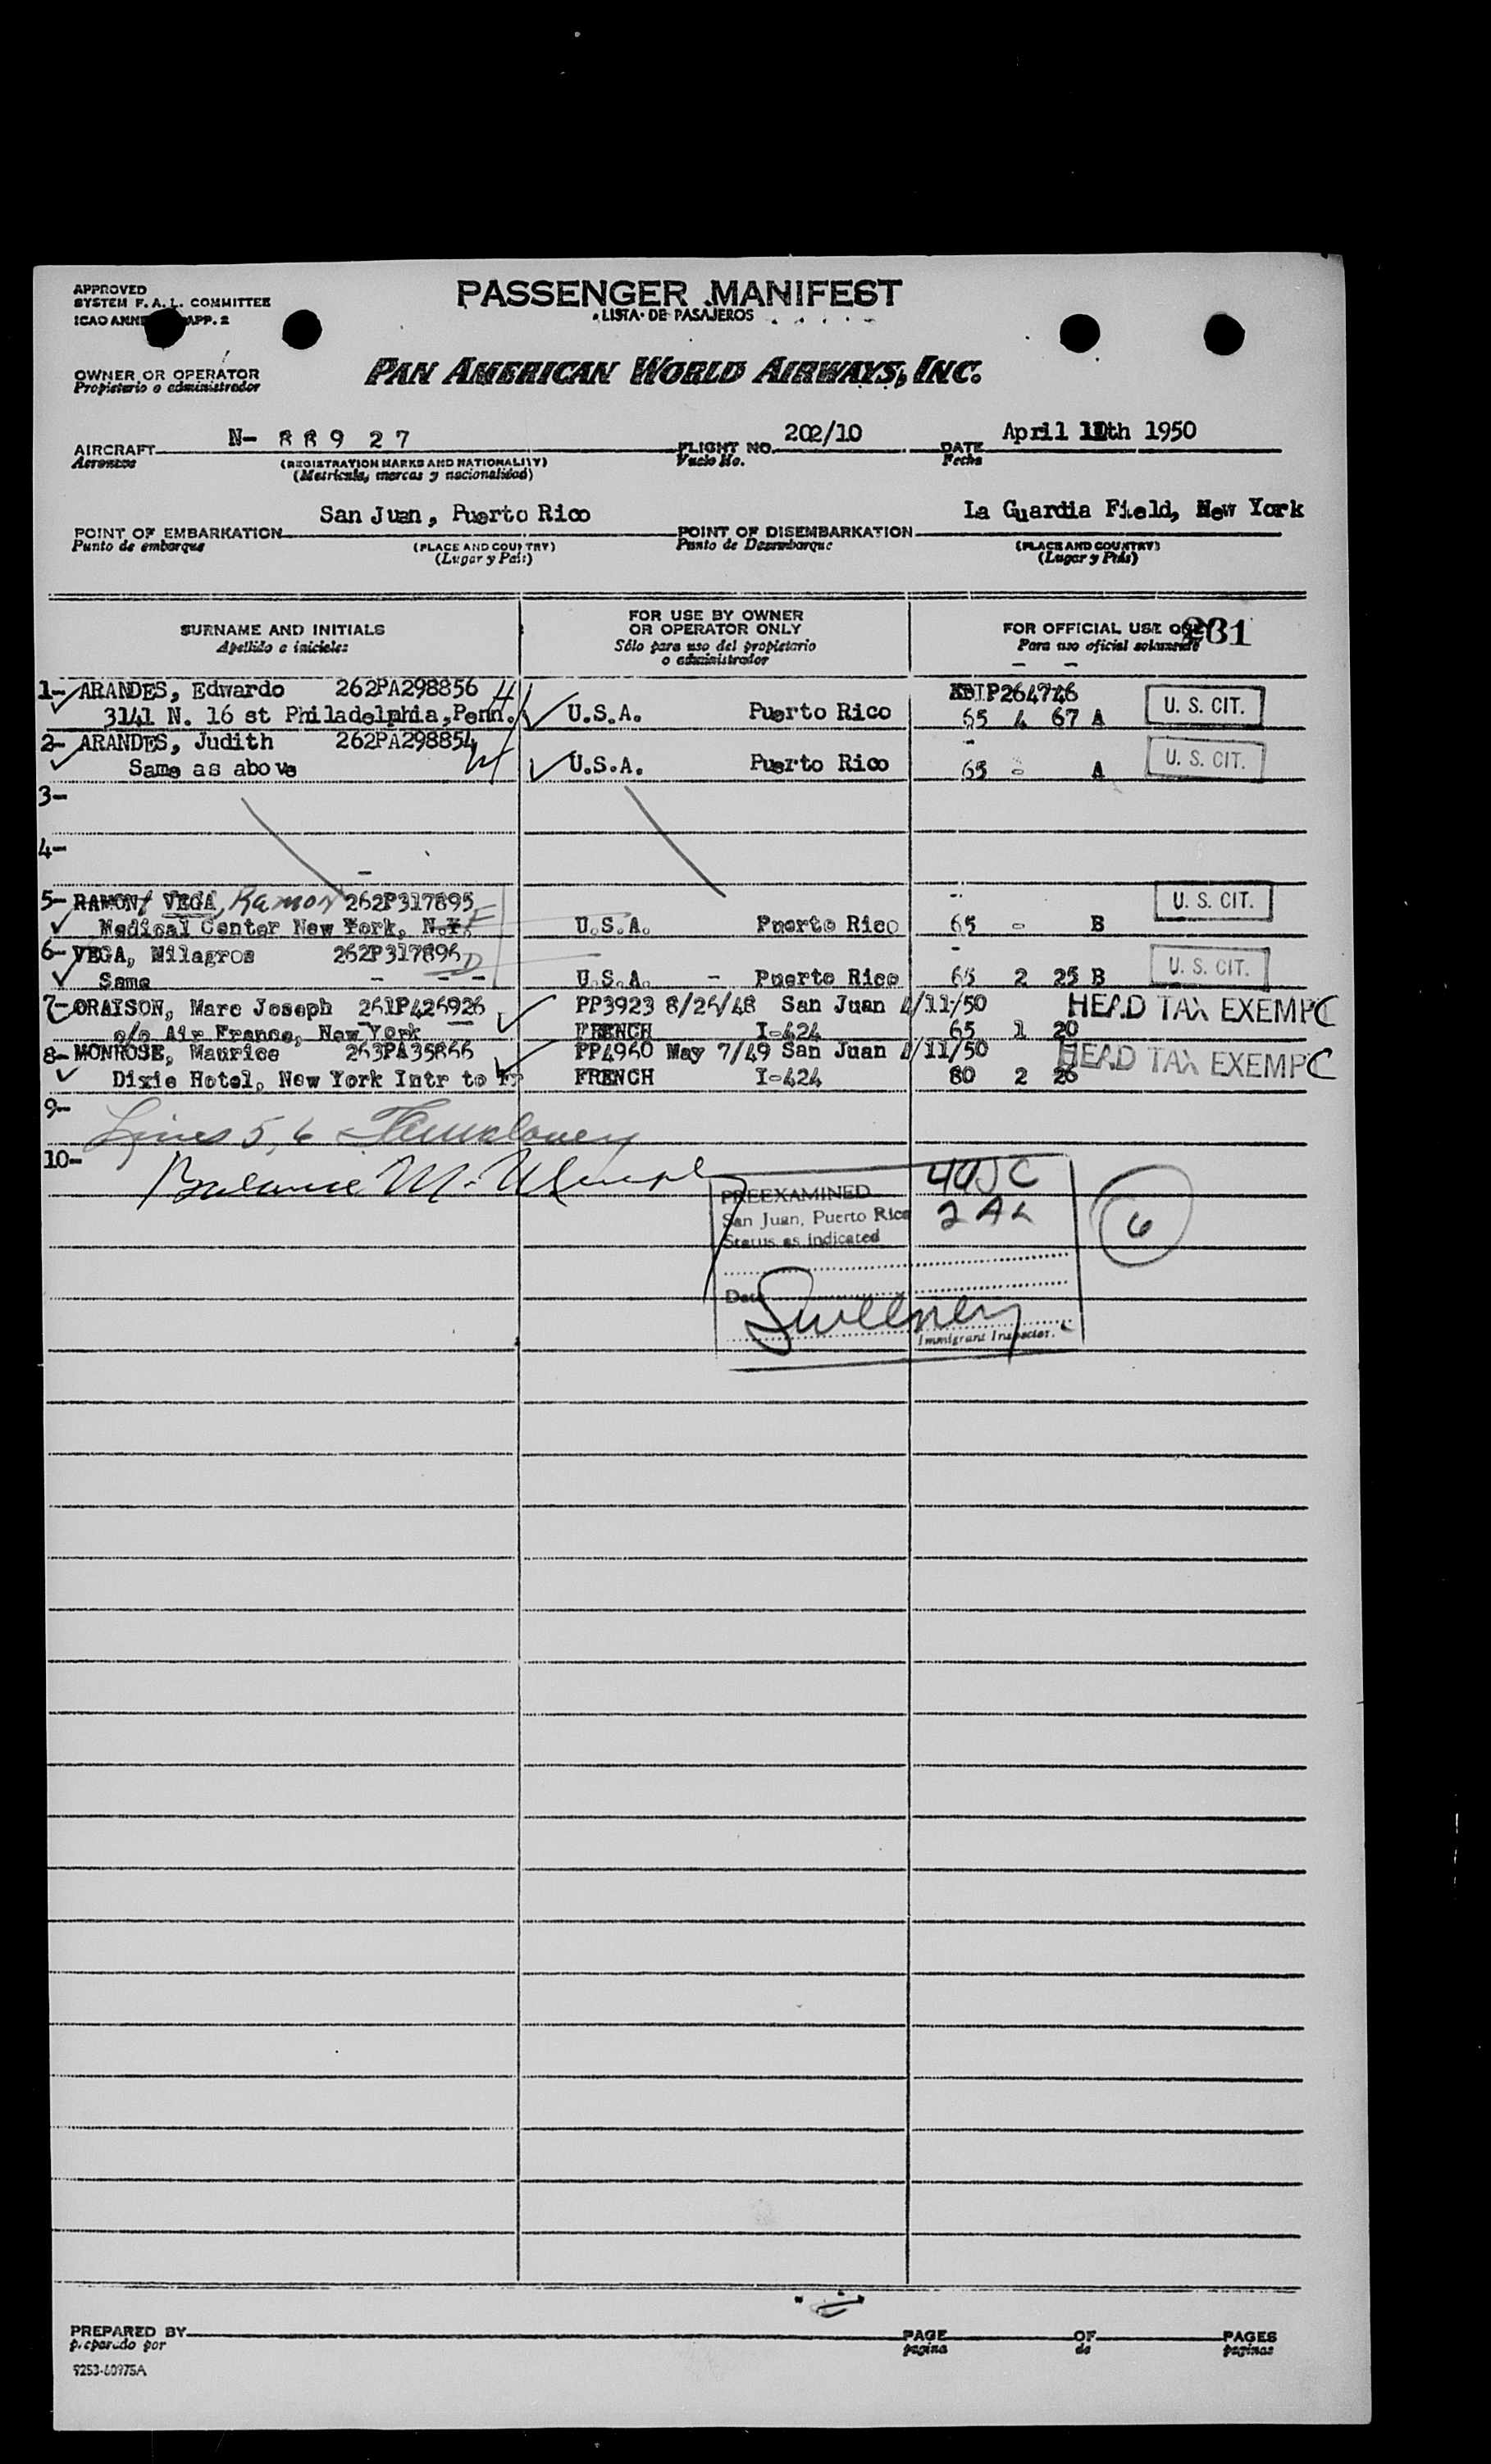 APPROVED
SYSTEM F. A. L. COMMITTEE
ICAO APP. 2
PASSENGER MANIFEST
LISTA DE PASAJEROS
OWNER OR OPERATOR
Propietario o administrador
PAN AMERICAN WORLD AIRWAYS, INC.
AIRCRAFT N- 8 8 9 2 7 FLIGHT NO. 202/10 DATE April 11th 1950
Aeronave (REGISTRATION MARKS AND NATIONALITY) Vuelo No. Fecha
(Matrícula, marcas y nacionalidad)
POINT OF EMBARKATION San Juan, Puerto Rico POINT OF DISEMBARKATION La Guardia Field, New York
Punto de embarque (PLACE AND COUNTRY) Punto de Desembarque (PLACE AND COUNTRY)
(Lugar y País) (Lugar y País)
SURNAME AND INITIALS FOR USE BY OWNER OR OPERATOR ONLY FOR OFFICIAL USE ONLY 231
Apellido e iniciales Sólo para uso del propietario o administrador Para uso oficial solamente
1- ARANDES, Edwardo 262PA298856 P264746
3141 N. 16 st Philadelphia, Penn. U.S.A. Puerto Rico 65 4 67 A U. S. CIT.
2- ARANDES, Judith 262PA298854
Same as above U.S.A. Puerto Rico 65 - A U. S. CIT.
3-
4-
5- RAMON VEGA, Ramon 262P317895 U. S. CIT.
Medical Center New York, N.Y. U.S.A. Puerto Rico 65 - B
6- VEGA, Milagros 262P317896 D
Same - - - U.S.A. - Puerto Rico 65 2 25 B U. S. CIT.
7- ORAISON, Marc Joseph 261P426926 PP3923 8/26/48 San Juan 4/11/50 HEAD TAX EXEMP C
c/o Air France, New York FRENCH I-424 65 1 20
8- MONROSE, Maurice 263PA35866 PP4960 May 7/49 San Juan 4/11/50 HEAD TAX EXEMP C
Dixie Hotel, New York Intr to FRENCH I-424 80 2 26
9-
Lines 5, 6
10-
PREEXAMINED
San Juan, Puerto Rico
Status as indicated
6
Date
Sweeney
Immigrant Inspector.
PREPARED BY PAGE OF PAGES
preparado por pagina de paginas
9253-60975A